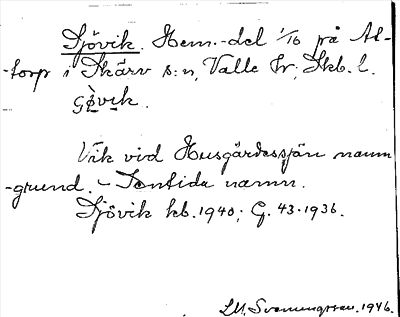 Sjövik. Hem.-del 1/16 på Al-
-torp i Skärv s:n, Valle hr, Skb. l.
Vik vid Husgärdessjön namn-
-grund. - Nutida namn.
Sjövik kb. 1940; G. 43. 1936.
1946.